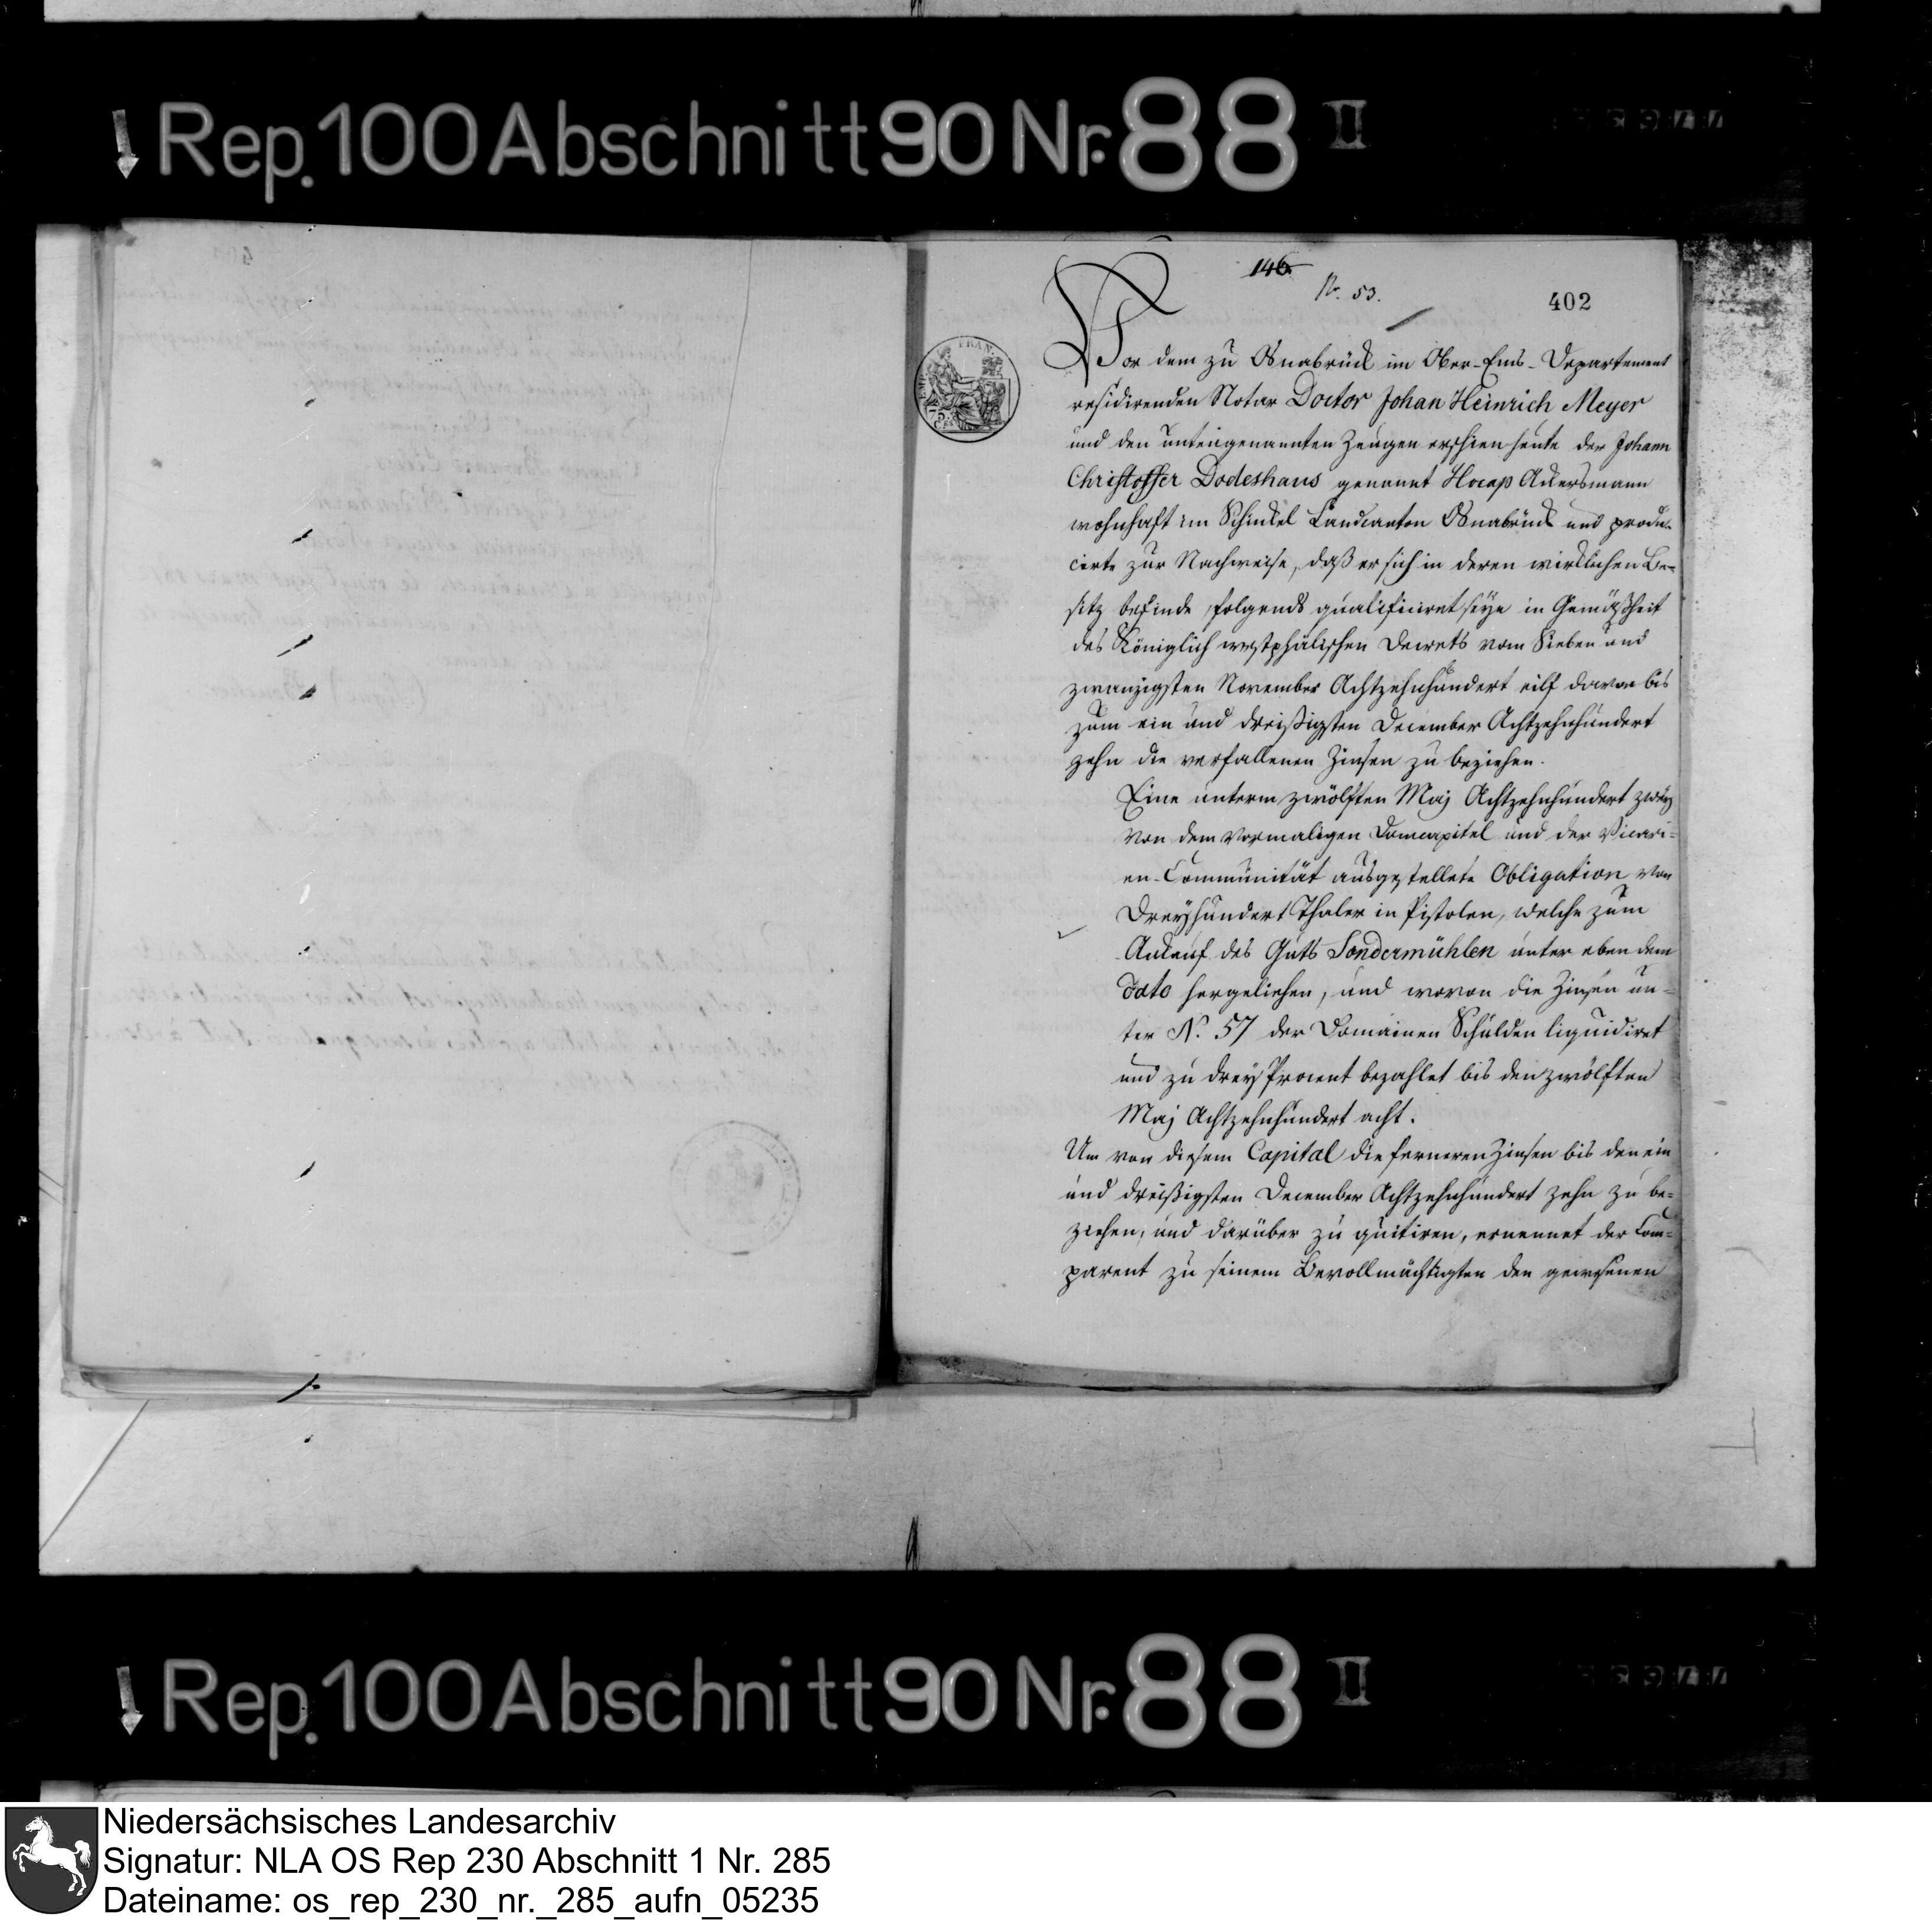 Rep. 100 Abschnitt 90 Nr. 88 II
146
Nr. 53.
402
EMP. FRAN.
75
CES
Vor dem zu Osnabrück im Ober-Ems-Departement
residirenden Notar Doctor Johan Heinrich Meyer
und den untengenannten Zeugen erschien heute der Johann
Christoffer Dodeshaus genannt Ackersmann
wohnhaft im Schinkel Landcanton Osnabrück und produ-
cirte zur Nachweise, daß er sich in deren wirklichen Be-
sitz befinde, folgends qualificiret seye in Gemäßheit
des Königlich westphälischen Decrets vom Sieben und
zwanzigsten November Achtzehnhundert eilf davon bis
zum ein und dreißigsten December Achtzehnhundert
zehn die verfallenen Zinsen zu beziehen.
Eine unterm zwölften Maj Achtzehnhundert zwey
von dem vormaligen Domcapitel und der Vicari-
en-Communität ausgestellete Obligation von
Dreyhundert Thaler in Pistolen, welche zum
Ankauf des Guts Sondermühlen unter eben dem
dato hergeliehen, und wovon die Zinsen un-
ter N. 57 der Domainen Schulden liquidiret
und zu drey Procent bezahlet bis den zwölften
Maj Achtzehnhundert acht.
Um von diesem Capital die ferneren Zinsen bis den ein
und dreißigsten December Achtzehnhundert zehn zu be-
ziehen, und darüber zu quitiren, ernennet der Com-
parent zu seinem Bevollmächtigten den gewesenen
Rep. 100 Abschnitt 90 Nr. 88 II
Niedersächsisches Landesarchiv
Signatur: NLA OS Rep 230 Abschnitt 1 Nr. 285
Dateiname: os_rep_230_nr._285_aufn_05235